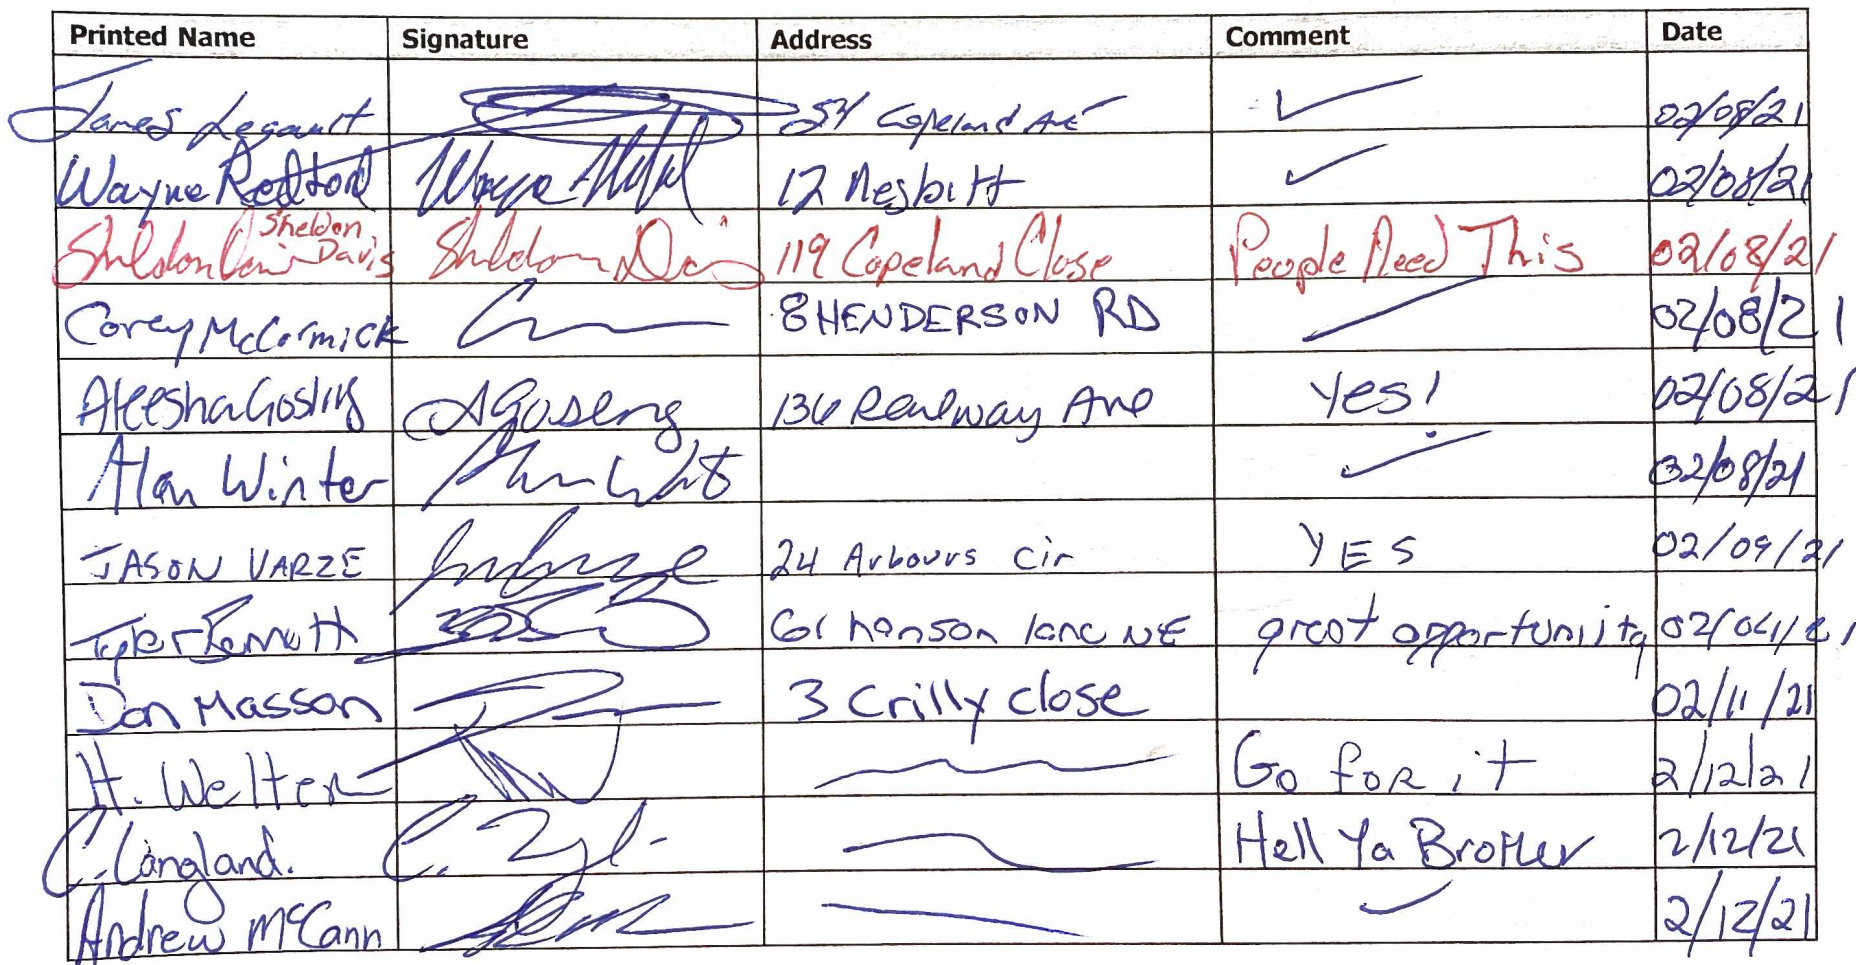 Printed Name Signature Address Comment Date
James Legault Copeland Ave ✓ 02/08/21
Wayne Redford Wayne 12 Nesbitt ✓ 02/08/21
Sheldon Davis Sheldon Davis Sheldon Davis 119 Copeland Close People Need This 02/08/21
Corey McCormick 8 HENDERSON RD ✓ 02/08/21
Aleesha Gosling AGosling 136 Railway Ave Yes! 02/08/21
Alan Winter ✓ 02/08/21
JASON VARZE 24 Arbours Cir YES 02/09/21
Tyler hanson lane NE great opportuniity
Don Masson 3 Crilly close 02/11/21
H. Welter Go foR it 2/12/21
C. Langland. Hell Ya Brother 2/12/21
Andrew McCann ✓ 2/12/21